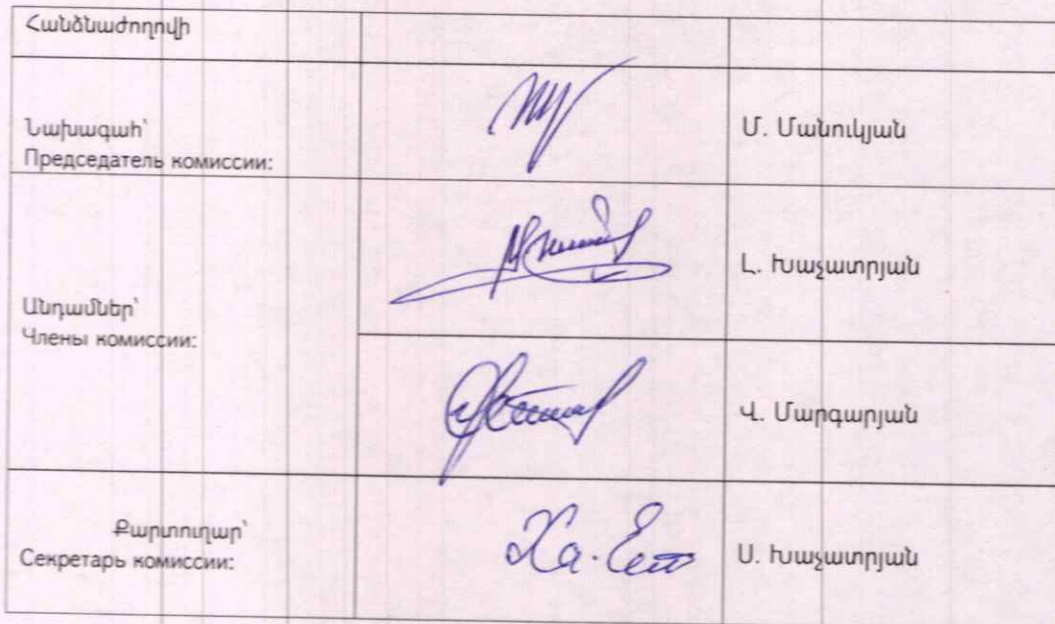 Հանձնաժողովի
Նախագահ՝
Председатель комиссии:
Մ. Մանուկյան
Լ. Խաչատրյան
Անդամներ՝
Члены комиссии:
Վ. Մարգարյան
Քարտուղար՝
Секретарь комиссии:
Ս. Խաչատրյան